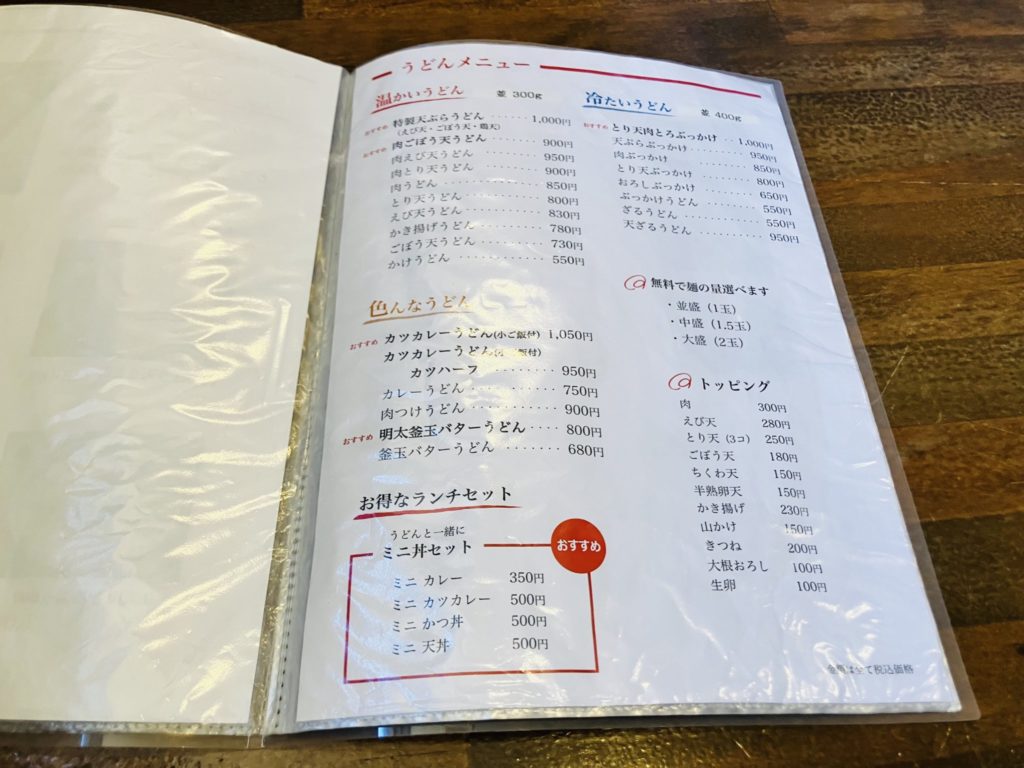 うどんメニュー
温かいうどん 並 300g
おすすめ 特製天ぷらうどん ······· 1,000円
(えび天・ごぼう天・鶏天)
おすすめ 肉ごぼう天うどん ······· 900円
肉えび天うどん ········· 950円
肉とり天うどん ········· 900円
肉うどん ············· 850円
とり天うどん ··········· 800円
えび天うどん ··········· 830円
かき揚げうどん ········· 780円
ごぼう天うどん ········· 730円
かけうどん ············ 550円
色んなうどん
おすすめ カツカレーうどん(小ご飯付) 1,050円
カツカレーうどん(小ご飯付)
カツハーフ ········ 950円
カレーうどん ··········· 750円
肉つけうどん ··········· 900円
おすすめ 明太釜玉バターうどん ···· 800円
釜玉バターうどん ········ 680円
お得なランチセット
うどんと一緒に
ミニ丼セット
おすすめ
ミニ カレー 350円
ミニ カツカレー 500円
ミニ かつ丼 500円
ミニ 天丼 500円
冷たいうどん 並 400g
おすすめ とり天肉とろぶっかけ ·· 1,000円
天ぷらぶっかけ ······· 950円
肉ぶっかけ ·········· 850円
とり天ぶっかけ ······· 800円
おろしぶっかけ ······· 650円
ぶっかけうどん ······· 550円
ざるうどん ·········· 550円
天ざるうどん ········· 950円
無料で麺の量選べます
・並盛(1玉)
・中盛(1.5玉)
・大盛(2玉)
トッピング
肉 300円
えび天 280円
とり天(3コ) 250円
ごぼう天 180円
ちくわ天 150円
半熟卵天 150円
かき揚げ 230円
山かけ 150円
きつね 200円
大根おろし 100円
生卵 100円
金額は全て税込価格